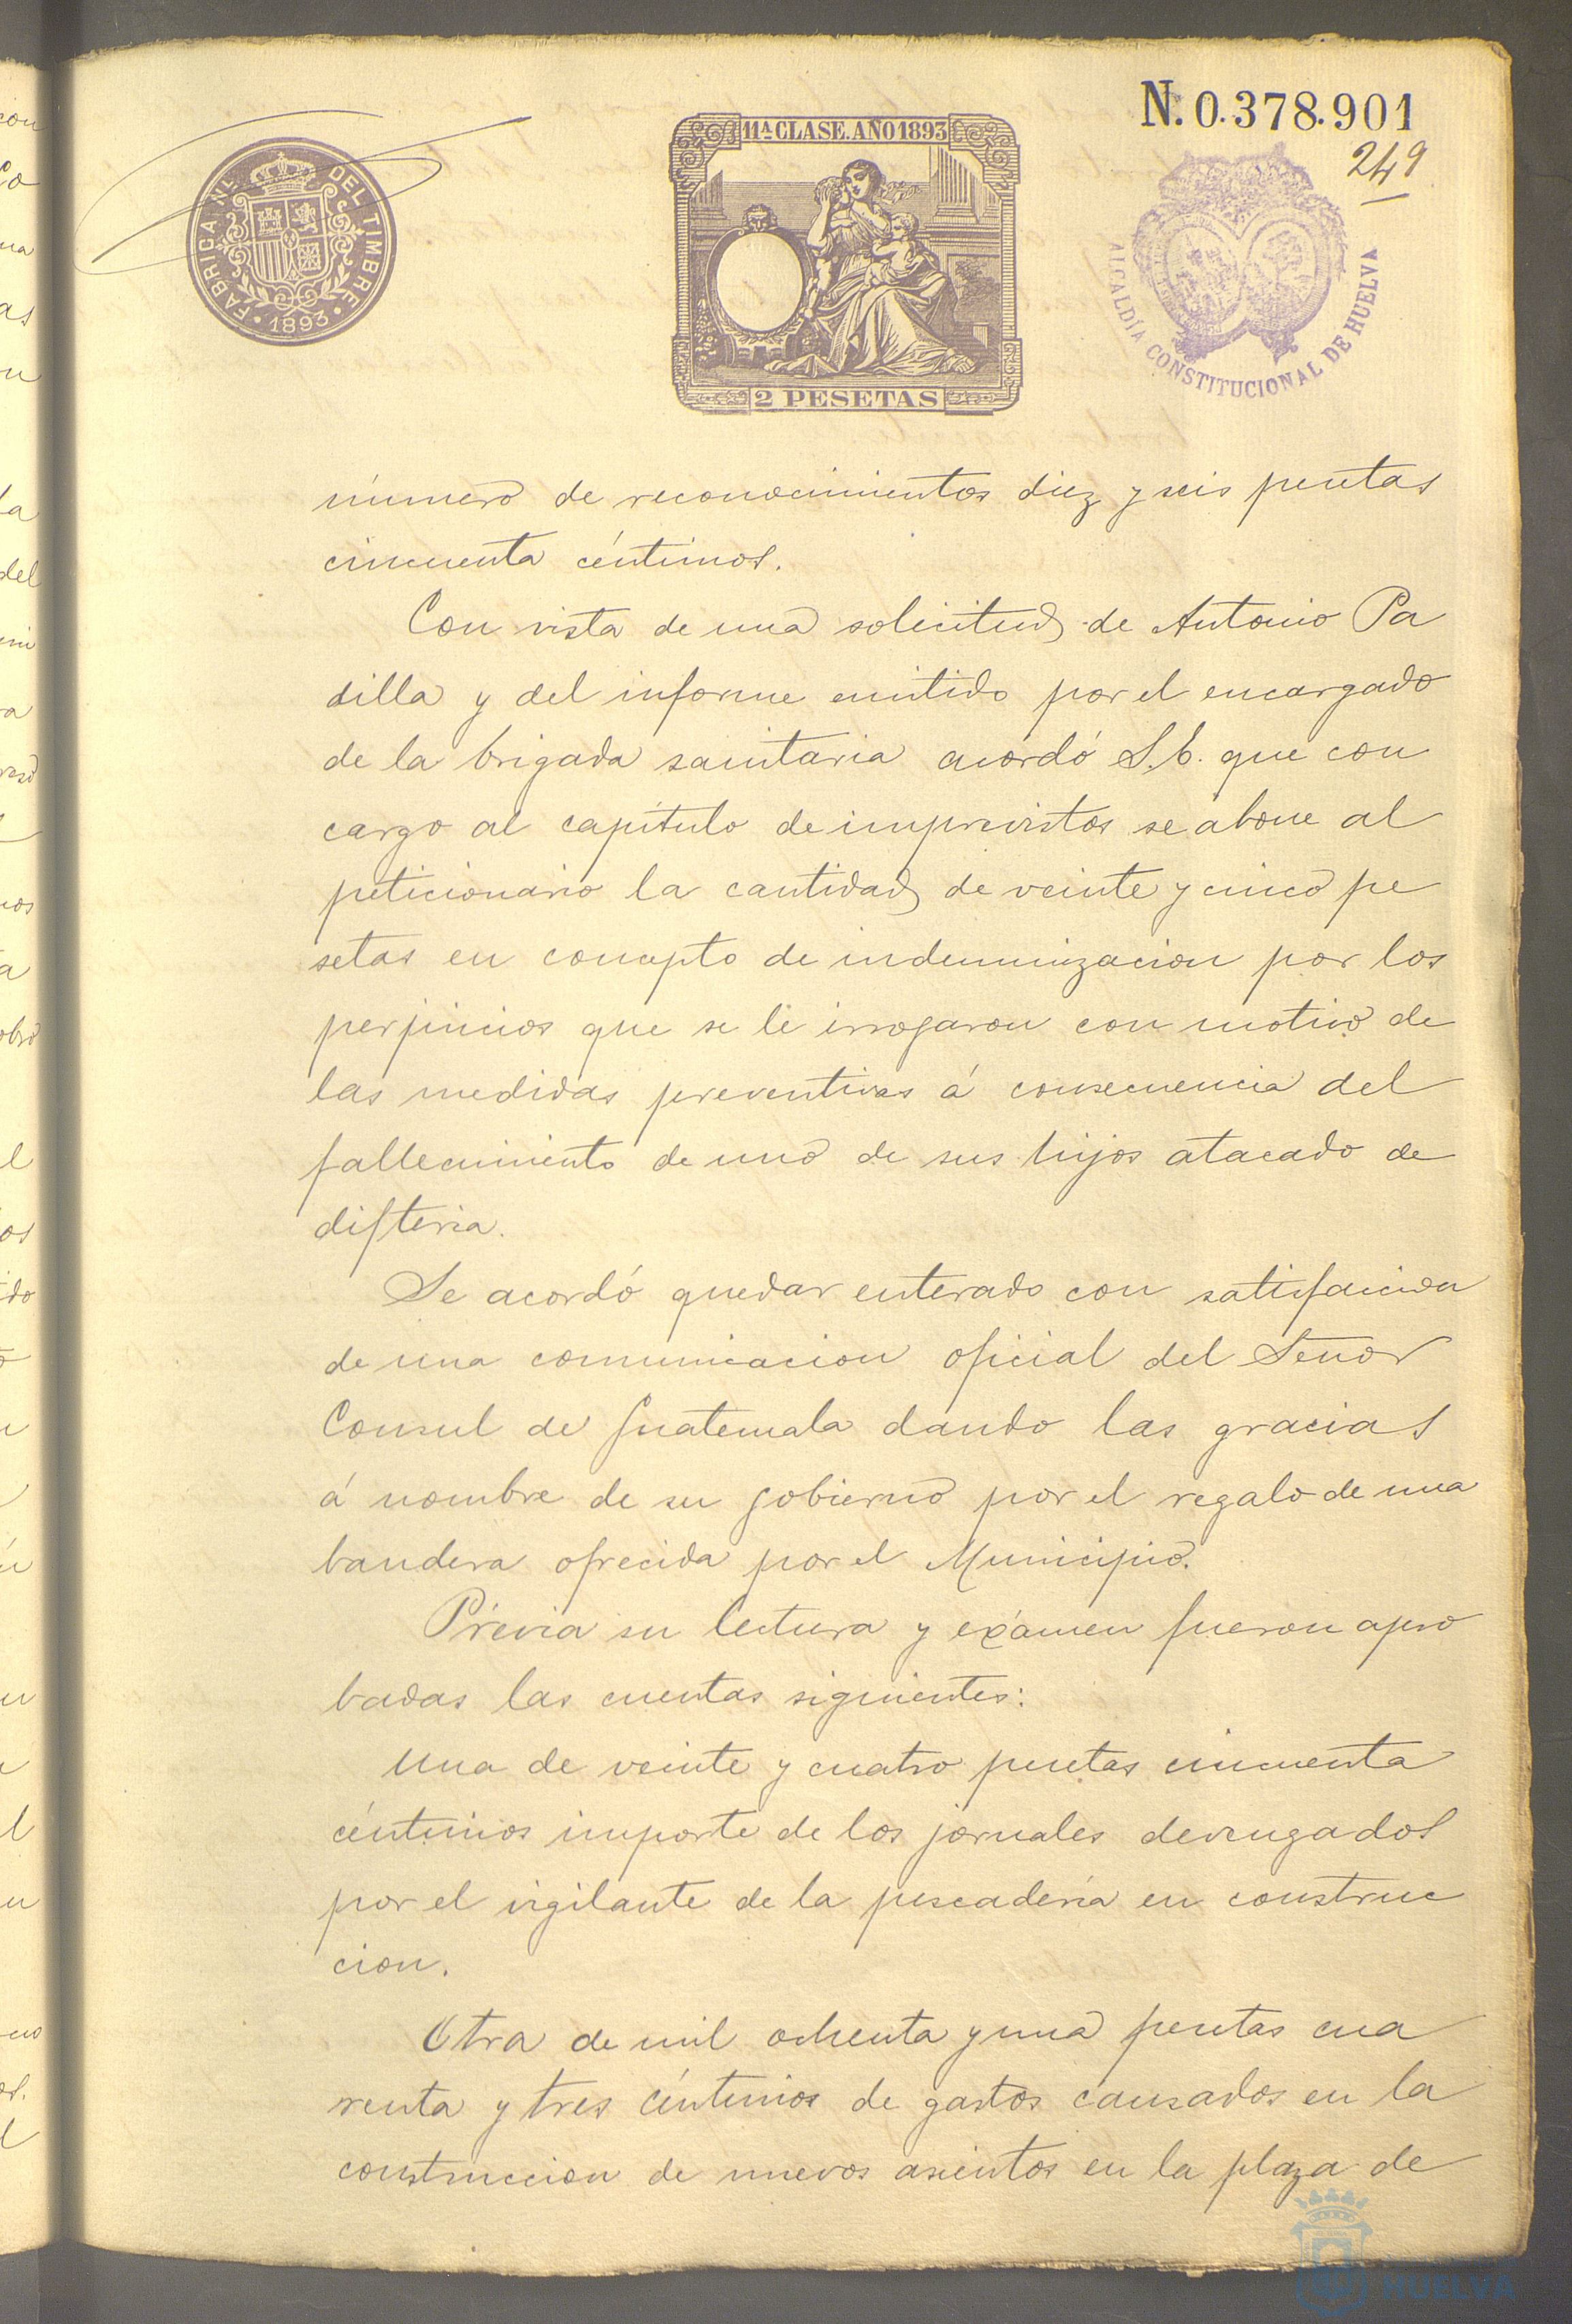 N. 0.378.901
249
11ª CLASE. AÑO 1893
FABRICA NL. DEL TIMBRE
· 1893 ·
2 PESETAS
ALCALDÍA CONSTITUCIONAL DE HUELVA
número de reconocimientos diez y seis pesetas
cincuenta céntimos.
Con vista de una solicitud de Antonio Pa
dilla y del informe emitido por el encargado
de la brigada sanitaria acordó S. E. que con
cargo al capítulo de imprevistos se abone al
peticionario la cantidad de veinte y cinco pe
setas en concepto de indemnizacion por los
perjuicios que se le irrogaron con motivo de
las medidas preventivas á consecuencia del
fallecimiento de uno de sus hijos atacado de
difteria.
Se acordó quedar enterado con satisfaccion
de una comunicacion oficial del Señor
Consul de Guatemala dando las gracias
á nombre de su gobierno por el regalo de una
bandera ofrecida por el Municipio.
Prévia su lectura y exámen fueron apro
badas las cuentas siguientes:
Una de veinte y cuatro pesetas cincuenta
céntimos importe de los jornales devengados
por el vigilante de la pescadería en construc
cion.
Otra de mil ochenta y una pesetas cua
renta y tres céntimos de gastos causados en la
construccion de nuevos asientos en la plaza de
HUELVA